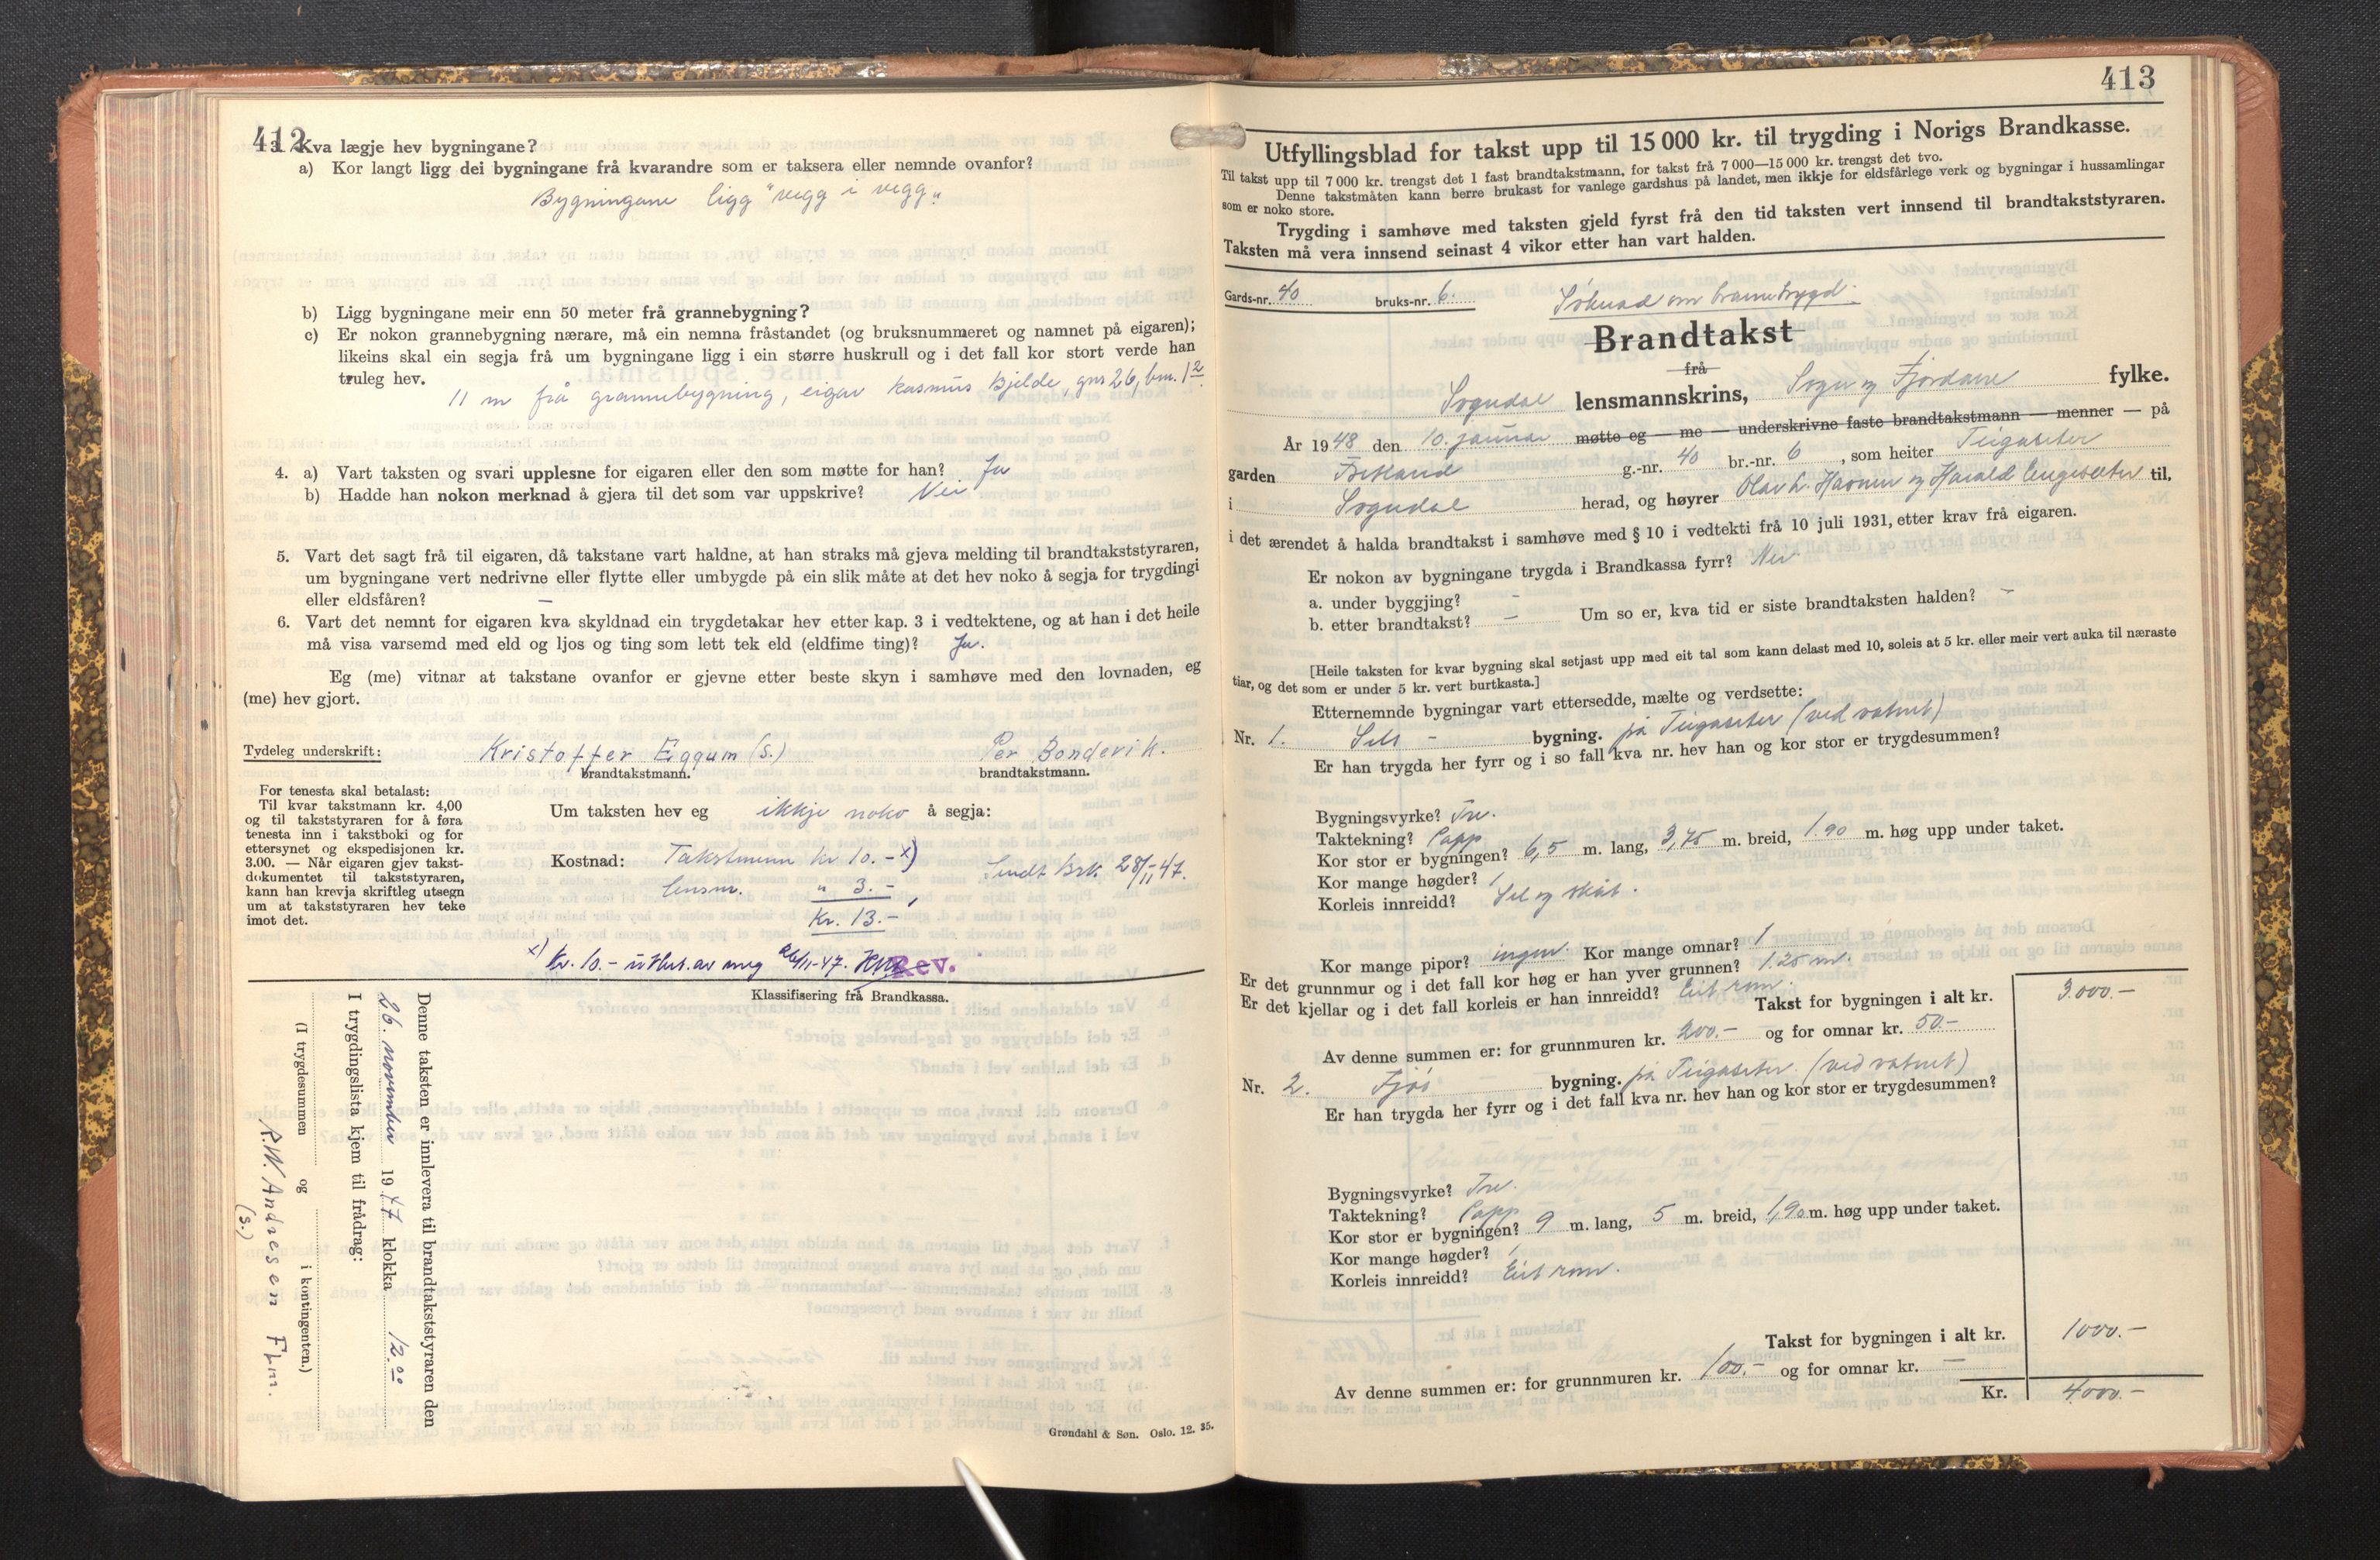 412
3. Kva lægje hev bygningane?
a) Kor langt ligg dei bygningane frå kvarandre som er taksera eller nemnde ovanfor?
Bygningane ligg "vegg i vegg".
b) Ligg bygningane meir enn 50 meter frå grannebygning?
c) Er nokon grannebygning nærare, må ein nemna fråstandet (og bruksnummeret og namnet på eigaren);
likeins skal ein segja frå um bygningane ligg i ein større huskrull og i det fall kor stort verde han
truleg hev.
11 m frå grannebygning, eigar Rasmus Kjelde, gnr 26, bnr. 12
4. a) Vart taksten og svari upplesne for eigaren eller den som møtte for han? Ja
b) Hadde han nokon merknad å gjera til det som var uppskrive? Nei
5. Vart det sagt frå til eigaren, då takstane vart haldne, at han straks må gjeva melding til brandtakststyraren,
um bygningane vert nedrivne eller flytte eller umbygde på ein slik måte at det hev noko å segja for trygdingi
eller eldsfåren? —
6. Vart det nemnt for eigaren kva skyldnad ein trygdetakar hev etter kap. 3 i vedtektene, og at han i det heile
må visa varsemd med eld og ljos og ting som lett tek eld (eldfime ting)? Ja.
Eg (me) vitnar at takstane ovanfor er gjevne etter beste skyn i samhøve med den lovnaden, eg
(me) hev gjort.
Tydeleg underskrift: Kristoffer Eggum (s.) Per Bondevik.
brandtakstmann. brandtakstmann.
For tenesta skal betalast:
Til kvar takstmann kr. 4,00
og til takststyraren for å føra
tenesta inn i takstboki og for
ettersynet og ekspedisjonen kr.
3.00. — Når eigaren gjev takst-
dokumentet til takststyraren,
kann han krevja skriftleg utsegn
um at takststyraren hev teke
imot det.
Um taksten hev eg ikkje noko å segja:
Kostnad: Takstmenn kr 10.- x)
lensm. " 3.-
Kr. 13.-
Sendt Brk. 28/11-47.
x) Kr. 10.- utbet. av meg 26/11-47.
Rev.
Klassifisering frå Brandkassa.
Denne taksten er innlevera til brandtakststyraren den
26. november 1947 klokka 12.00
I trygdingslista kjem til frådrag:
(I trygdesummen og i kontingenten.)
R.W. Andresen Flm.
(s.)
Grøndahl & Søn. Oslo. 12. 35.
413
Utfyllingsblad for takst upp til 15 000 kr. til trygding i Norigs Brandkasse.
Til takst upp til 7 000 kr. trengst det 1 fast brandtakstmann, for takst frå 7 000—15 000 kr. trengst det tvo.
Denne takstmåten kann berre brukast for vanlege gardshus på landet, men ikkje for eldsfårlege verk og bygningar i hussamlingar
som er noko store.
Trygding i samhøve med taksten gjeld fyrst frå den tid taksten vert innsend til brandtakststyraren.
Taksten må vera innsend seinast 4 vikor etter han vart halden.
Gards-nr. 40 bruks-nr. 6.
Søknad om branntrygd.
Brandtakst
frå
Sogndal lensmannskrins, Sogn og Fjordane fylke.
År 1948 den 10. januar møtte eg — me — underskrivne faste brandtakstmann — menner — på
garden g.-nr. 40 br.-nr. 6, som heiter Teigaseter
i Sogndal herad, og høyrer Olav L. Havnen og Harald Engeseter til,
i det ærendet å halda brandtakst i samhøve med § 10 i vedtekti frå 10 juli 1931, etter krav frå eigaren.
Er nokon av bygningane trygda i Brandkassa fyrr? Nei
a. under byggjing? —
b. etter brandtakst? — Um so er, kva tid er siste brandtaksten halden? —
[Heile taksten for kvar bygning skal setjast upp med eit tal som kann delast med 10, soleis at 5 kr. eller meir vert auka til næraste
tiar, og det som er under 5 kr. vert burtkasta.]
Etternemnde bygningar vart ettersedde, mælte og verdsette:
Nr. 1. Sels - bygning. på Teigaseter (ved vatnet)
Er han trygda her fyrr og i so fall kva nr. hev han og kor stor er trygdesummen?
Bygningsvyrke? Tre.
Taktekning? Papp
Kor stor er bygningen? 6,5 m. lang, 3,75 m. breid, 1.90 m. høg upp under taket.
Kor mange høgder? 1
Korleis innreidd? Sel og skåt.
Kor mange pipor? ingen Kor mange omnar? 1
Er det grunnmur og i det fall kor høg er han yver grunnen? 1.25 m.
Er det kjellar og i det fall korleis er han innreidd? Eit rom.
Takst for bygningen i alt kr. 3.000.-
Av denne summen er: for grunnmuren kr. 200.- og for omnar kr. 50.-
Nr. 2. Fjøs bygning. på Teigaseter (ved vatnet)
Er han trygda her fyrr og i det fall kva nr. hev han og kor stor er trygdesummen?
Bygningsvyrke? Tre.
Taktekning? Papp
Kor stor er bygningen? 9 m. lang, 5 m. breid, 1,90 m. høg upp under taket.
Kor mange høgder? 1
Korleis innreidd? Eit rom.
Takst for bygningen i alt kr. 1000.-
Av denne summen er: for grunnmuren kr. 100.- og for omnar kr. —
Kr. 4000.-